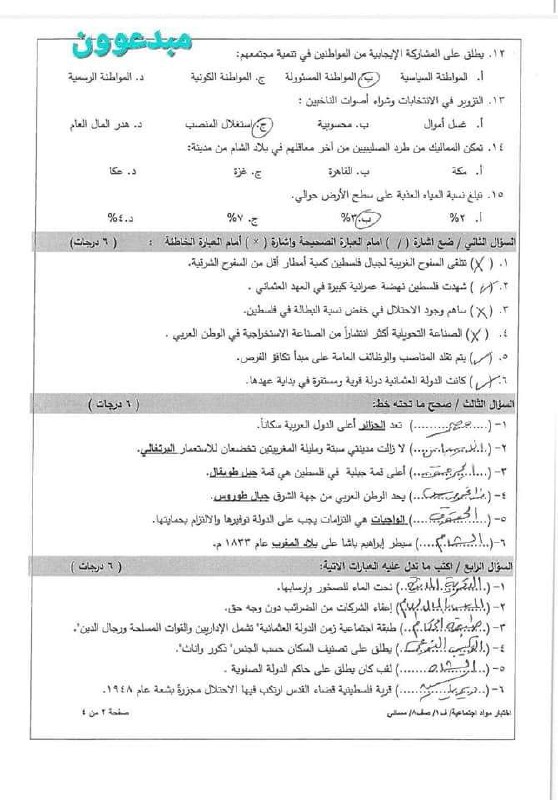 مبدعوون
١٢. يطلق على المشاركة الإيجابية من المواطنين في تنمية مجتمعهم:
أ. المواطنة السياسية ب. المواطنة المسئولة ج. المواطنة الكونية د. المواطنة الرسمية
١٣. التزوير في الانتخابات وشراء أصوات الناخبين :
أ. غسل أموال ب. محسوبية ج. استغلال المنصب د. هدر المال العام
١٤. تمكن المماليك من طرد الصليبيين من آخر معاقلهم في بلاد الشام من مدينة:
أ. مكة ب. القاهرة ج. غزة د. عكا
١٥. تبلغ نسبة المياه العذبة على سطح الأرض حوالي.
أ. ٢% ب. ٣% ج. ٧% د. ٤%
السؤال الثاني / ضع اشارة ( / ) امام العبارة الصحيحة واشارة ( × ) أمام العبارة الخاطئة : ( ٦ درجات)
١. (X) تتلقى السفوح الغربية لجبال فلسطين كمية أمطار أقل من السفوح الشرقية.
٢. (✓) شهدت فلسطين نهضة عمرانية كبيرة في العهد العثماني .
٣. (X) ساهم وجود الاحتلال في خفض نسبة البطالة في فلسطين.
٤. (X) الصناعة التحويلية أكثر انتشاراً من الصناعة الاستخراجية في الوطن العربي .
٥. (✓) يتم تقلد المناصب والوظائف العامة على مبدأ تكافؤ الفرص.
٦. (✓) كانت الدولة العثمانية دولة قوية ومستقرة في بداية عهدها.
السؤال الثالث / صحح ما تحته خط: ( ٦ درجات )
١- (مصر) تعد الجزائر أعلى الدول العربية سكاناً.
٢- ( ) لا زالت مدينتي سبتة ومليلة المغربيتين تخضعان للاستعمار البرتغالي.
٣- ( ) أعلى قمة جبلية في فلسطين هي قمة جبل طويقال.
٤- ( ) يحد الوطن العربي من جهة الشرق جبال طوروس.
٥- (الحقوق) الواجبات هي التزامات يجب على الدولة توفيرها والالتزام بحمايتها.
٦- (الشام) سيطر إبراهيم باشا على بلاد المغرب عام ١٨٣٣ م.
السؤال الرابع / اكتب ما تدل عليه العبارات الاتية: ( ٦ درجات )
١- ( ) نحت الماء للصخور وإرسابها.
٢- ( ) إعفاء الشركات من الضرائب دون وجه حق.
٣- (طبقة الحكام) طبقة اجتماعية زمن الدولة العثمانية" تشمل الإداريين والقوات المسلحة ورجال الدين".
٤- (التركيب النوعي) يطلق على تصنيف السكان حسب الجنس" ذكور واناث".
٥- (الشاه) لقب كان يطلق على حاكم الدولة الصفوية .
٦- (دير ياسين) قرية فلسطينية قضاء القدس ارتكب فيها الاحتلال مجزرة بشعة عام ١٩٤٨.
اختبار مواد اجتماعية/ ف١/ صف٨/ مسائي صفحة ٢ من ٤